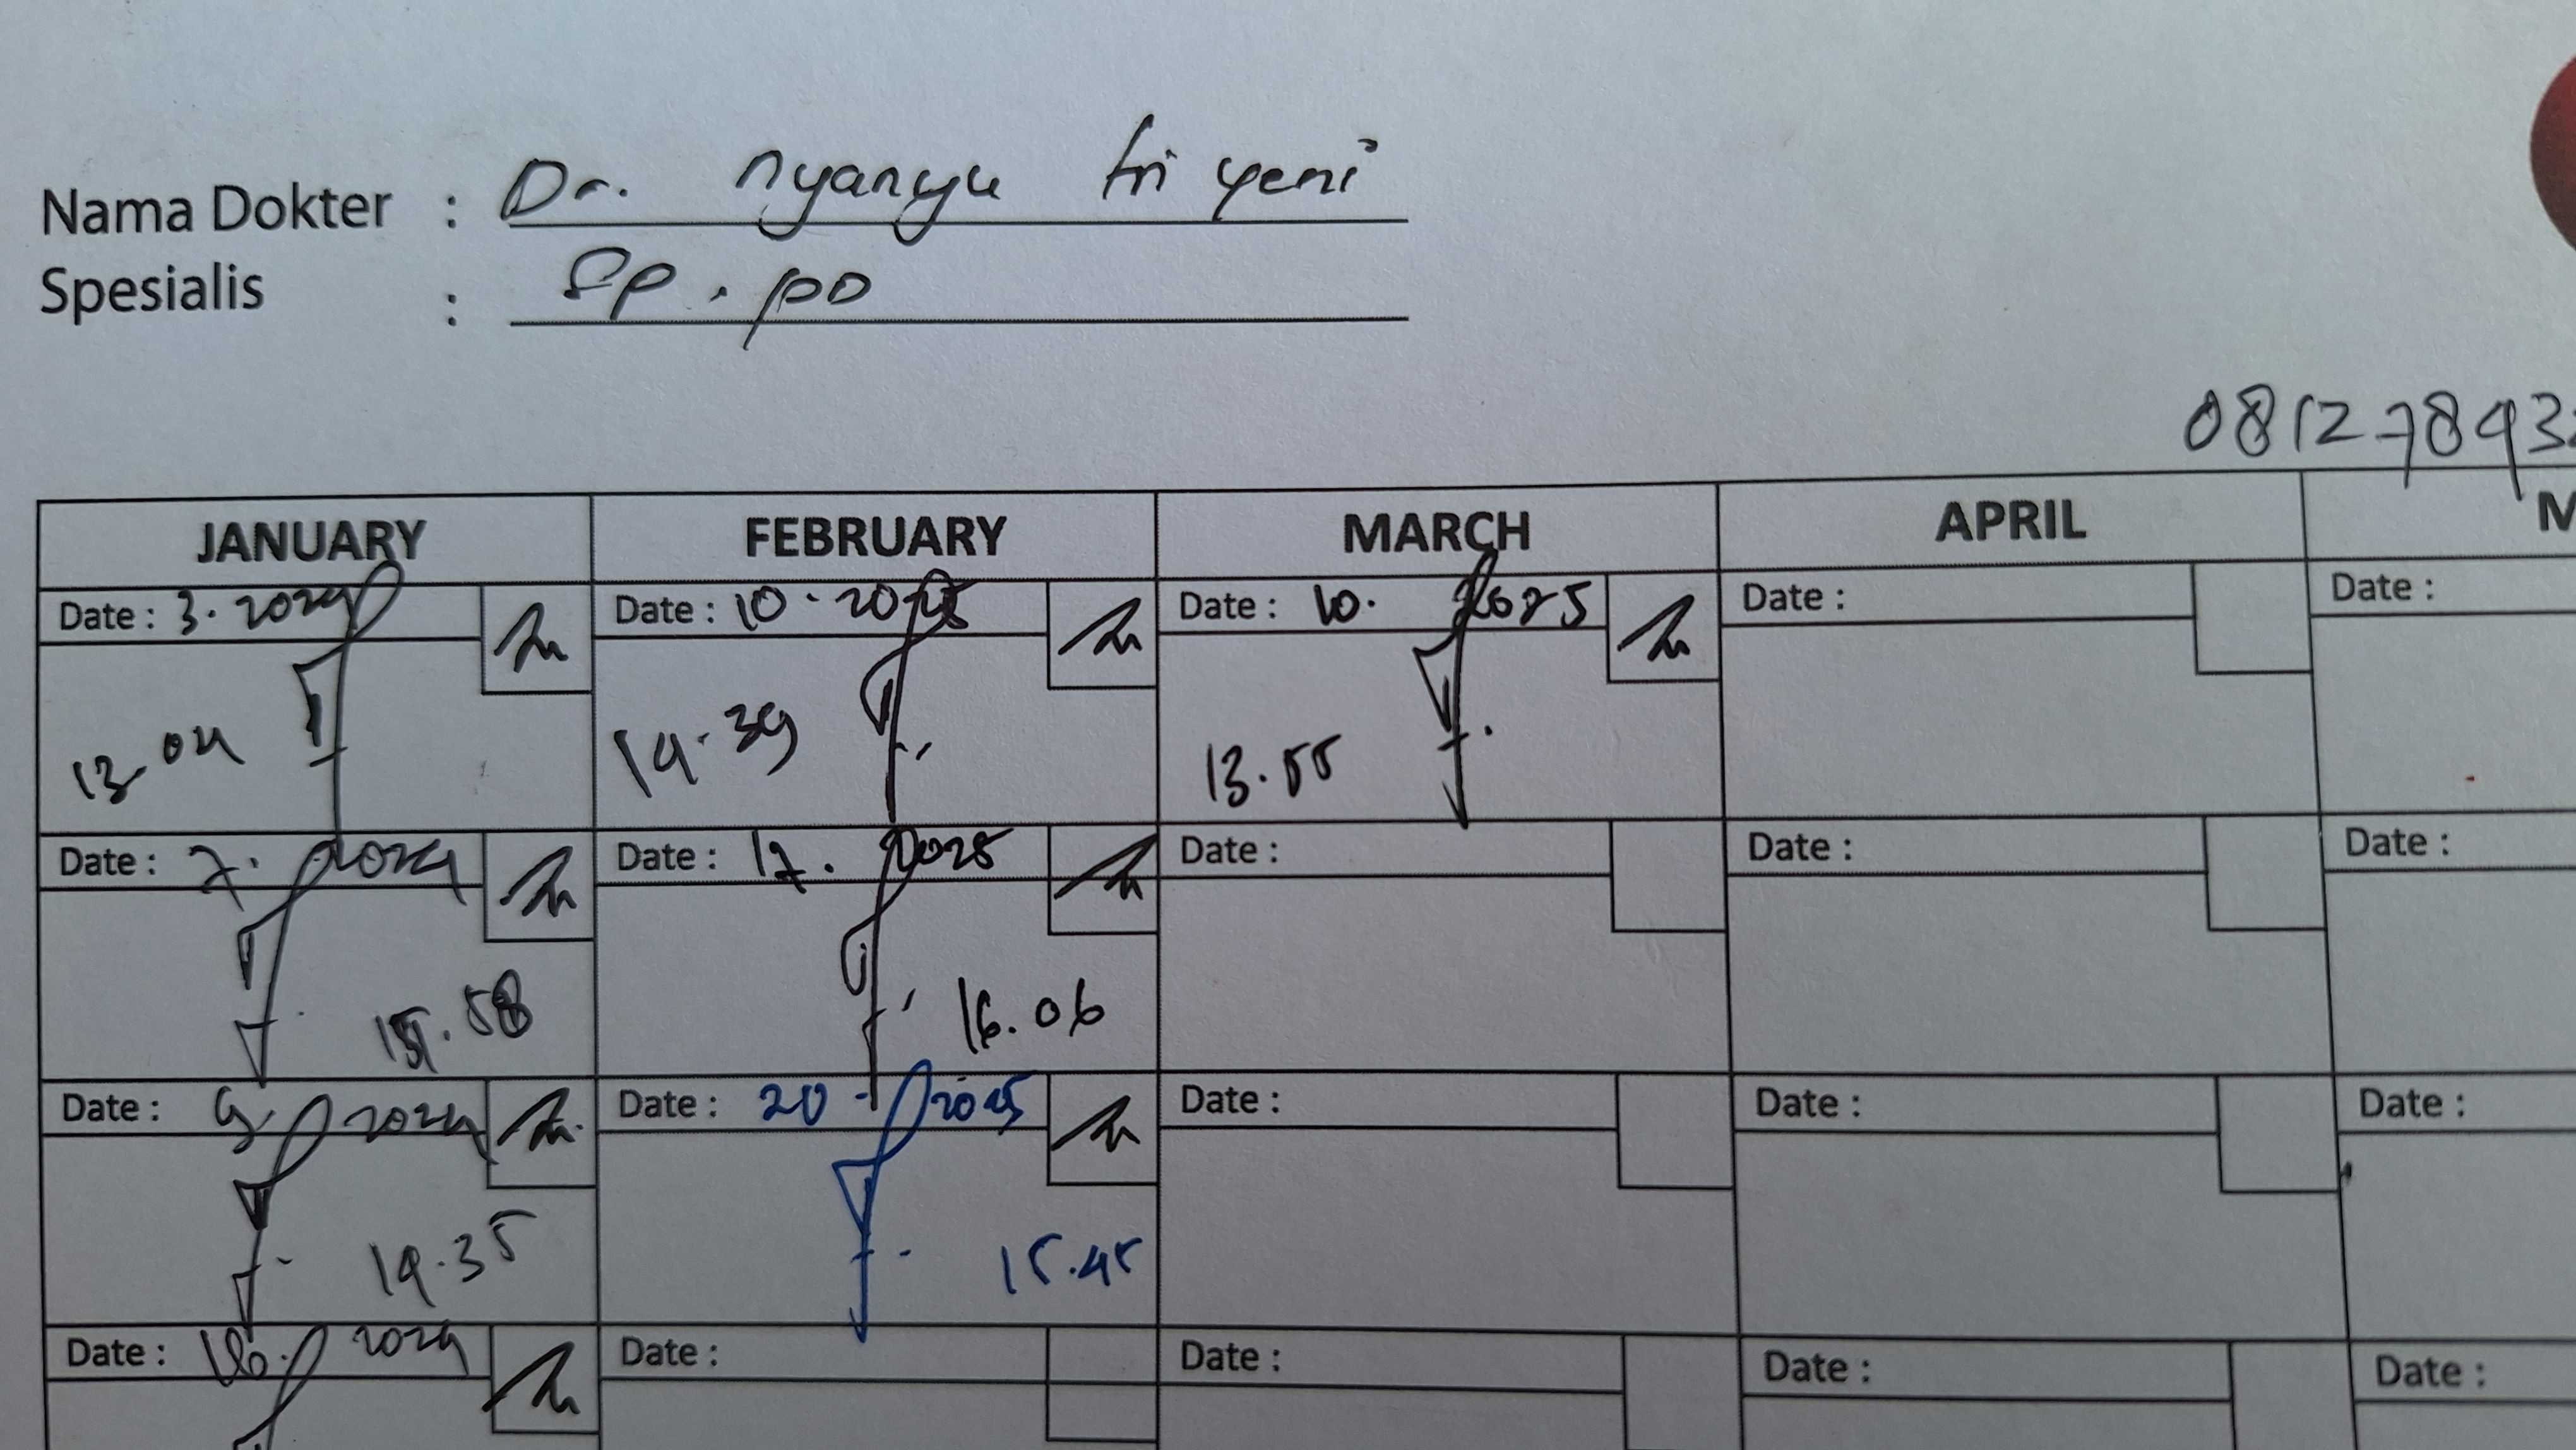 Nama Dokter : Dr. nyanyu tri yeni
Spesialis : Sp. pD
08127843
JANUARY FEBRUARY MARCH APRIL M
Date : 3. 2024 Date : 10. 2025 Date : 10. 2025 Date : Date :
13.04 14.39 13.55
Date : 7. 2024 Date : 17. 2025 Date : Date : Date :
15.58 16.06
Date : 9. 2024 Date : 20 - 2025 Date : Date : Date :
14.35 15.45
Date : 16. 2024 Date : Date : Date : Date :